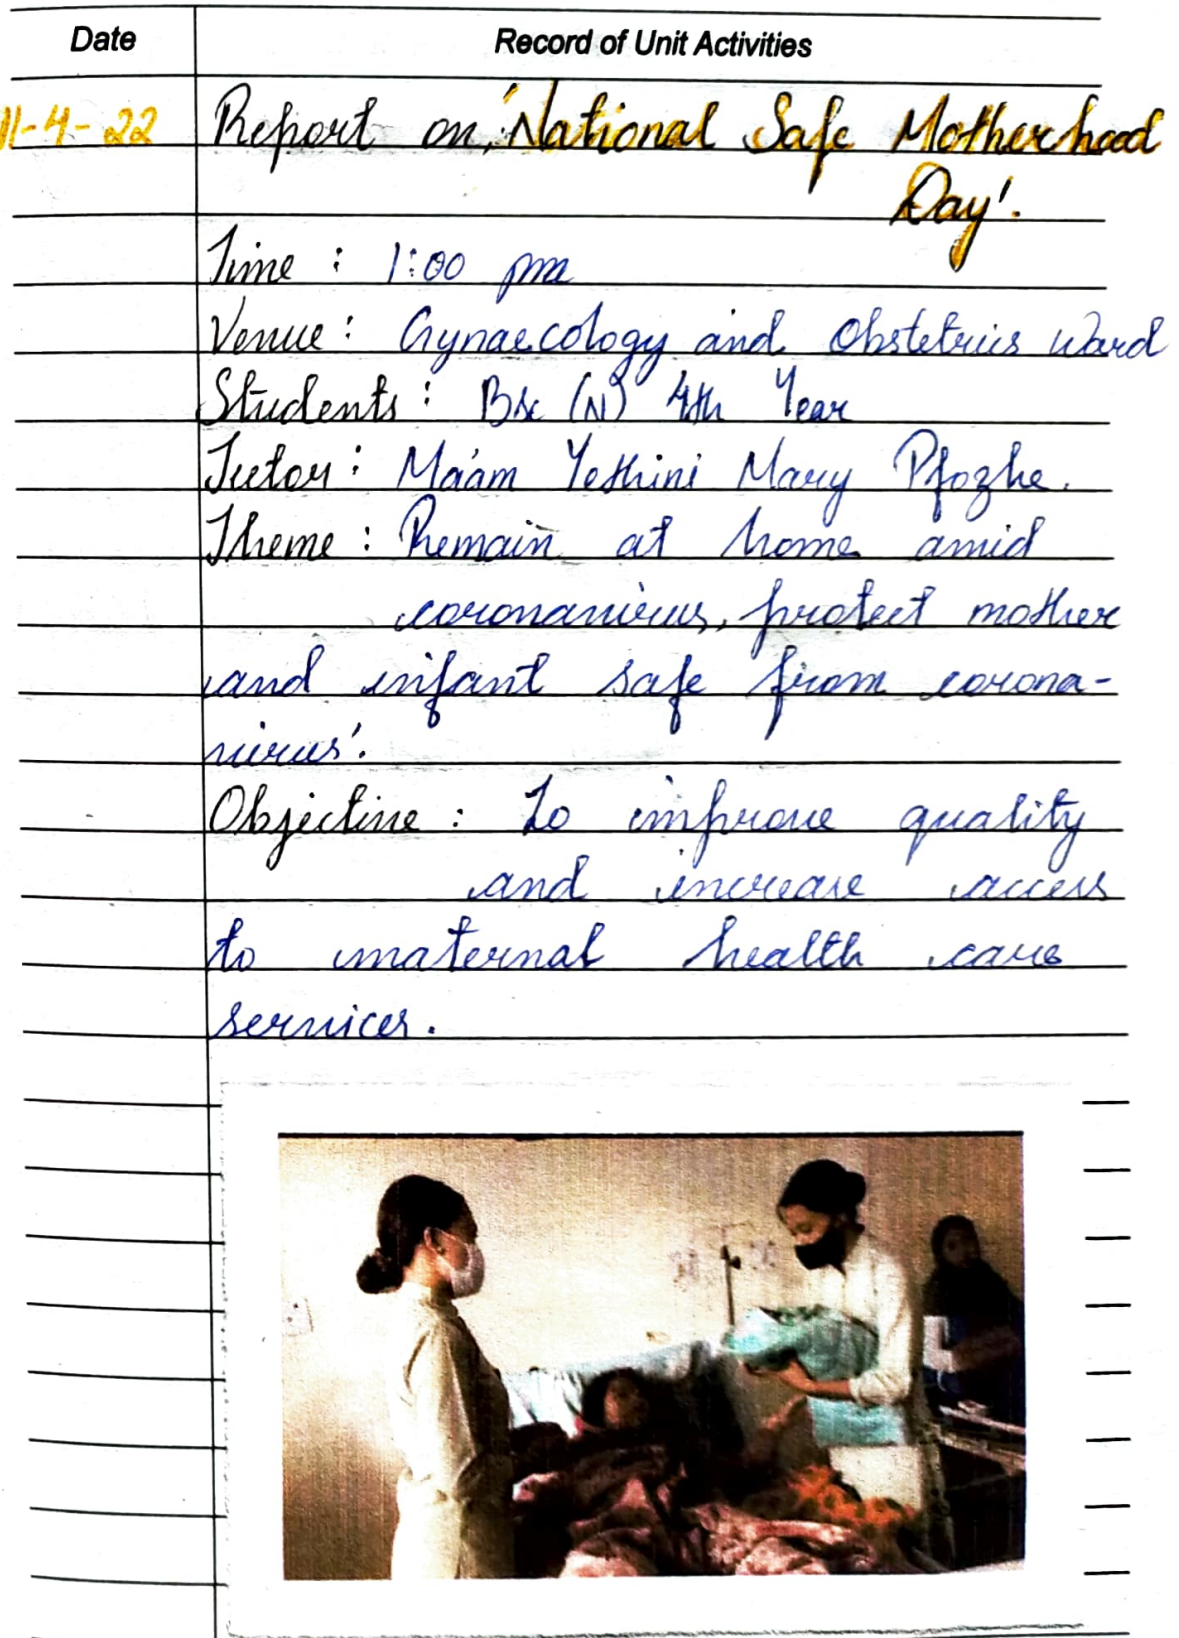 Date
Record of Unit Activities
11-4-22
Report on, 'National Safe Motherhood
Day'.
Time : 1:00 pm
Venue : Gynaecology and Obstetrics ward
Students : Bsc (N) 4th Year
Tutor : Ma'am Yeshini Mary Pfozhe.
Theme : Remain at home amid
coronavirus, protect mother
and infant safe from corona-
virus'.
Objective : To improve quality
and increase access
to maternal health care
services.